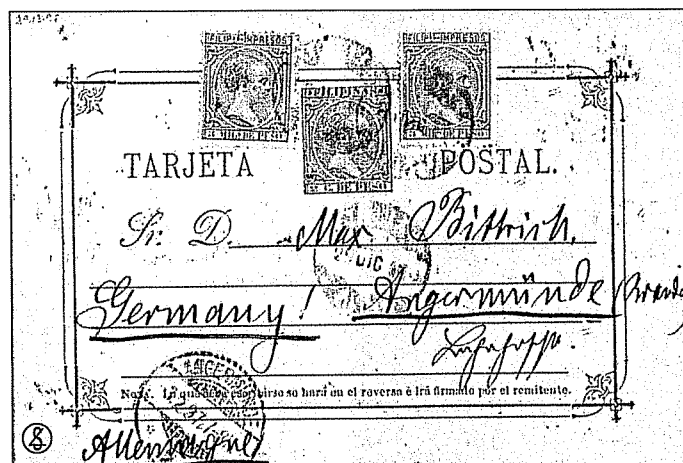 FILIPs IMPRESOS FILIPs IMPRESOS
FILIPINAS
MILs DE PESO MILs DE PESO
DE PESO
TARJETA POSTAL.
Sr. D. Max Bittrich.
DIC
Germany! Angermünde
ANGERM
Nota. Lo que debe escribirse se hará en el reverso é irá firmado por el remitente.
Allemagne
8